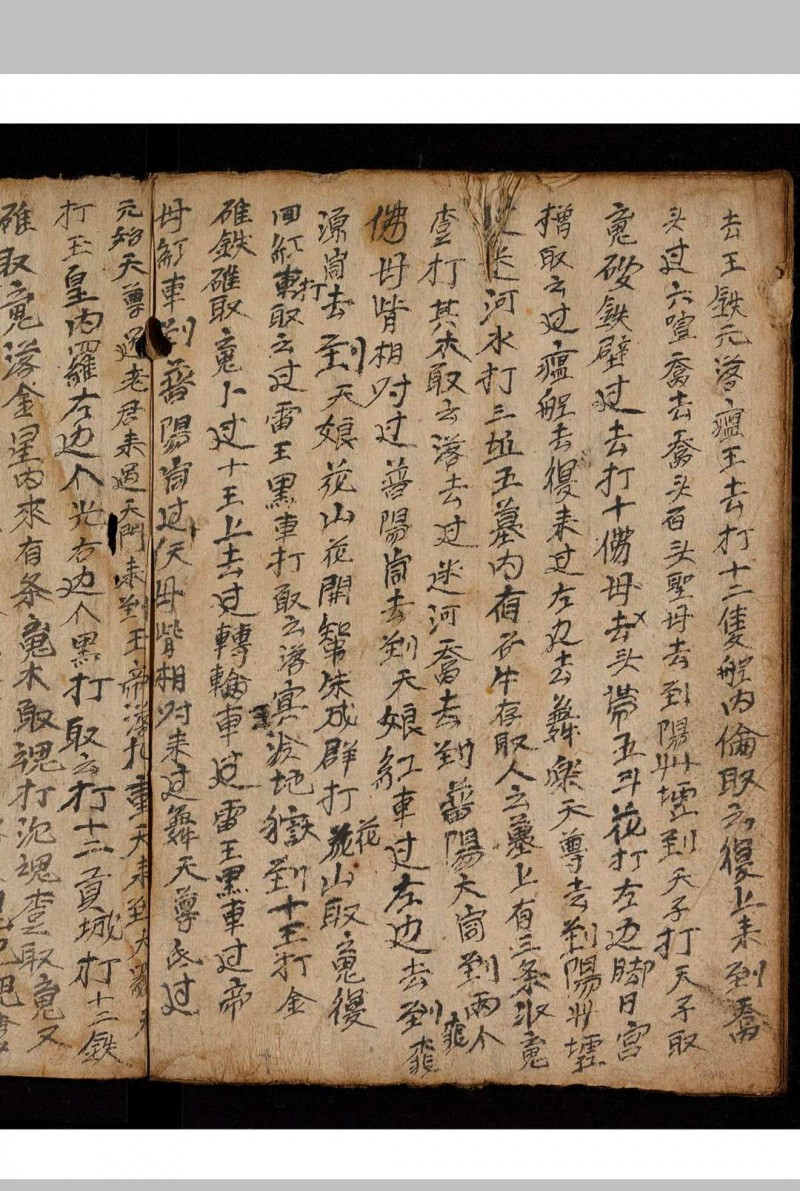 去王鉄元落瘟王去打十二隻舩内倫取云復上来到喬
头过六喧喬去喬头百头聖母去到陽州壇到天子打天子取
魂破鉄壁过去打十傍母去头带五斗花打左边脚日宫
橧取云过瘟舩去復来过左边去舞樂天尊去到陽州壇
迷河水打三坵五墓内有石牛存取人云墓上有三条取魂
壹打其木取云落去过迷河喬去到普陽大崗到兩个
佛母背相对过普陽崗去到天娘紅車过左边去到
源崗去到天娘花山花開朱成群打花山取魂復
回紅車打取云过雷王黑車打取云落冥冷地獄到十王打金
碓鉄碓取魂卜过十王上去过轉輪車过雷王黑車过帝
母紅車到普陽崗过天母背相对来过舞天尊氏过
元始天尊過老君来過天門来到玉帝落九重天来到大羅天
打玉皇内羅左边个光右边个黑打取云打十二貢城打十二鉄
碓取魂落金星内來有条魂木取魂打沉魂壹取魂又